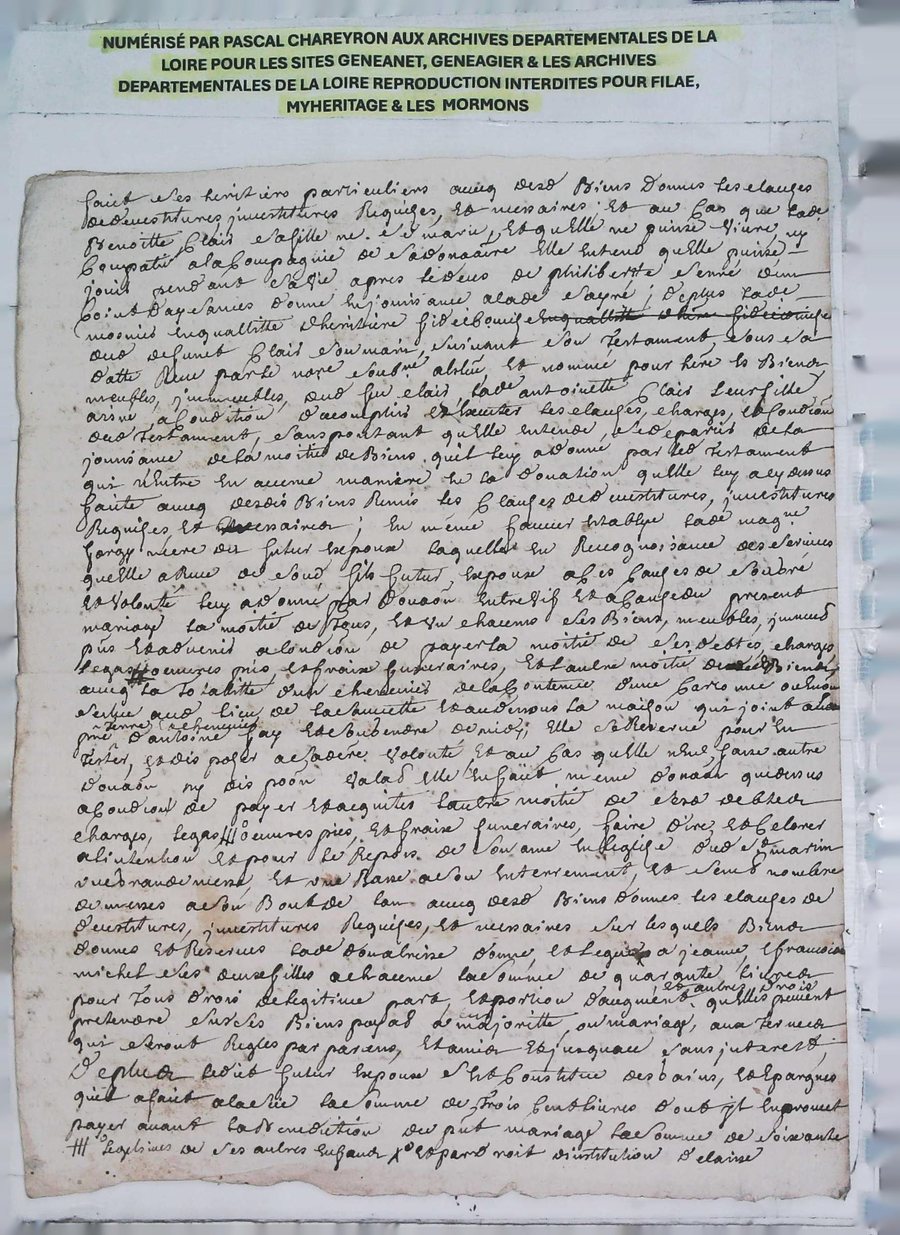 NUMÉRISÉ PAR PASCAL CHAREYRON AUX ARCHIVES DEPARTEMENTALES DE LA
LOIRE POUR LES SITES GENEANET, GENEAGIER & LES ARCHIVES
DEPARTEMENTALES DE LA LOIRE REPRODUCTION INTERDITES POUR FILAE,
MYHERITAGE & LES MORMONS
faict ses heritiers particuliers avecq desd Biens Donnes les clauses
de devestitures, jnvestitures Requises, Et nessaires; Et au Cas que lade
Benoitte Clair sa fille ne se marie, Et quelle ne puisse vivre, ny
Compatir a la Compagnie de sa donataire Elle Entend quelle puisse
jouir pendant sa vie apres le deces de philiberte
point dayances donne la jouissance a lade ; deplus lade
en quallitte dheritiere fideicommise
dud deffunct Clair son mary, suivant son Testament, sous sa
datte Receu par le nore soubné, Et nommé pour here Es Biens
meubles, jmmeubles, dud feu Clair, lade antoinette Clair leur fille
aisné, a Condition daccomplir Et executer les clauses, charges, Et Condiõn
dud Testament, sans pourtant quelle entende se departir de la
jouissance de la moitie de Biens quil luy a donné par led Testament
qui nentre En aucune maniere En la donation quelle luy a cy dessus
faitte avecq desd Biens Remis les Clauses de devestitures, jnvestitures
Requises, Et nessaires; En meme faveur Etablye lade magne
Garay mere du futur Expoux laquelle En Recognoissance des services
quelle a Receu de sond fils futur Expoux a Ces Causes de son Gré
Et volonté luy a donné par donaõn Entrevif Et a Cause du present
mariage la moitié de Tous, Et Un chacuns ses Biens, meubles, jmmeub
pnts Et advenir a Condiõn de payer la moitie de ses debtes, charges
legas oeuvres pies Et fraix funeraires, Et lautre moitie Biens
avecq la Totalitte dun chenevier de la Contenue dune Cartonne ou Environ
scitue aud lieu de Et au dessous la maison qui joint
pré dantoine Gay Et de midy; Elle se Reserve pour En
Tester, Et disposer a sa dere Volonté, Et au Cas quelle nen fasse autre
donaõn ny dispoõn valad Elle En fait meme donaõn que dessus
a Condiõn de payer Et acquiter lautre moitie de sesd debtes
charges, legas oeuvres pies, Et fraix funeraires, faire dire, Et Celebrer
a lintention Et pour le Repos de son ame En leglise dud St martin
une Grande messe, Et une Basse a son Enterrement, Et semb nombre
de messes a son Bout de lan avecq desd Biens donnes les clauses de
devestitures, jnvestitures Requises, Et nessaires sur lesquels Biens
donnes Et Reserves lade donatrisse donne, Et legue a jeanne, Efrancoise
michel ses deux filles a chacune la somme de quarante livres
Et autres droits
pour Tous droits de legitime part, Et portion daugment quelles peuvent
pretendre sur ses Biens payab a majoritte, ou mariage, aux Termes
qui seront Regles par parens, Et amis Et jusquau sans jnterest,
Deplus ledit futur Expoux sest Constitue des Gains, Et Epargnes
quil a fait a la la somme de Trois Cent livres dont jl En promet
payer avant la Benediction du pnt mariage la somme de soixante
legitimes de ses autres Enfants Et par droit dinstitution delaisse